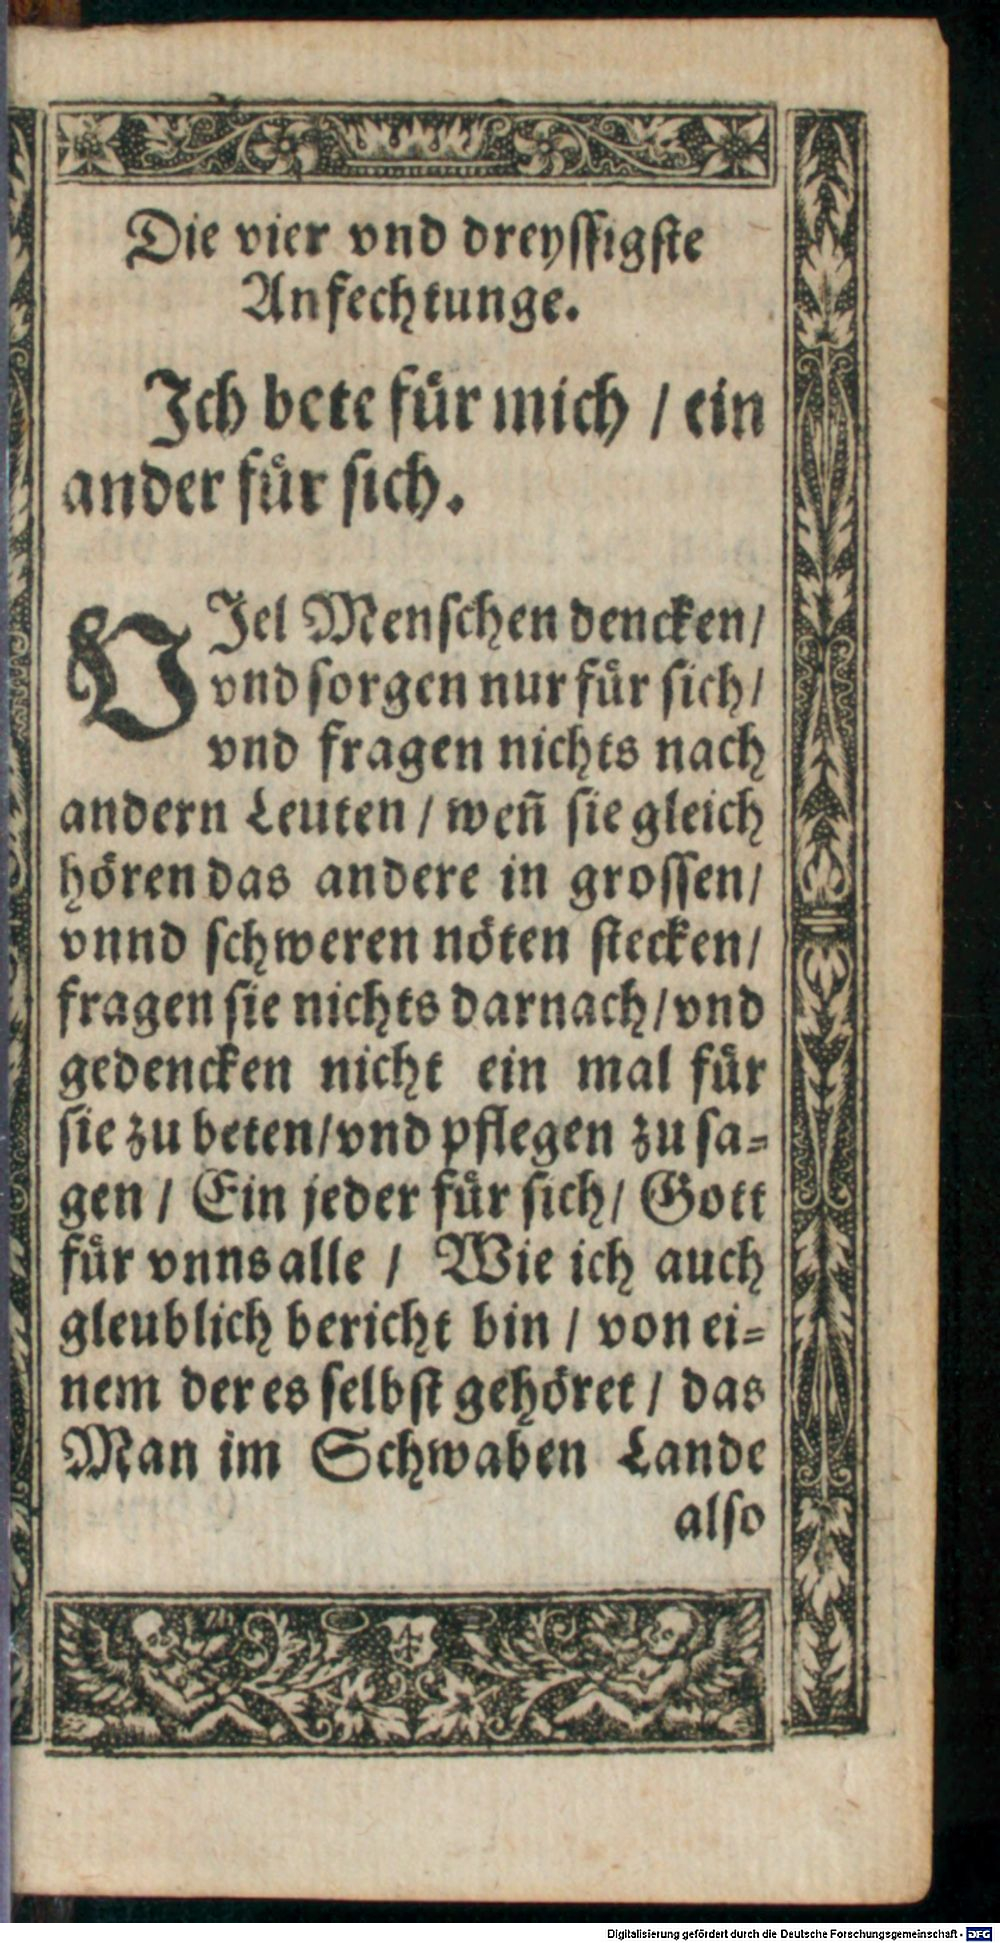 Die vier vnd dreyſſigſte
Anfechtunge.
Ich bete fuͤr mich / ein
ander fuͤr ſich.
VIel Menſchen dencken/
vnd ſorgen nur fuͤr ſich/
vnd fragen nichts nach
andern Leuten / weñ ſie gleich
hoͤren das andere in groſſen/
vnnd ſchweren noͤten ſtecken/
fragen ſie nichts darnach/vnd
gedencken nicht ein mal fuͤr
ſie zu beten/vnd pflegen zu ſa=
gen / Ein jeder fuͤr ſich/ Gott
fuͤr vnns alle / Wie ich auch
gleublich bericht bin / von ei=
nem der es ſelbſt gehoͤret / das
Man im Schwaben Lande
alſo
Digitalisierung gefördert durch die Deutsche Forschungsgemeinschaft - DFG